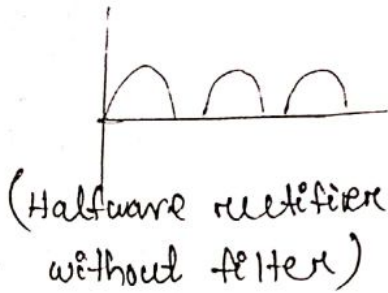 (Halfware rectifier
without filter)